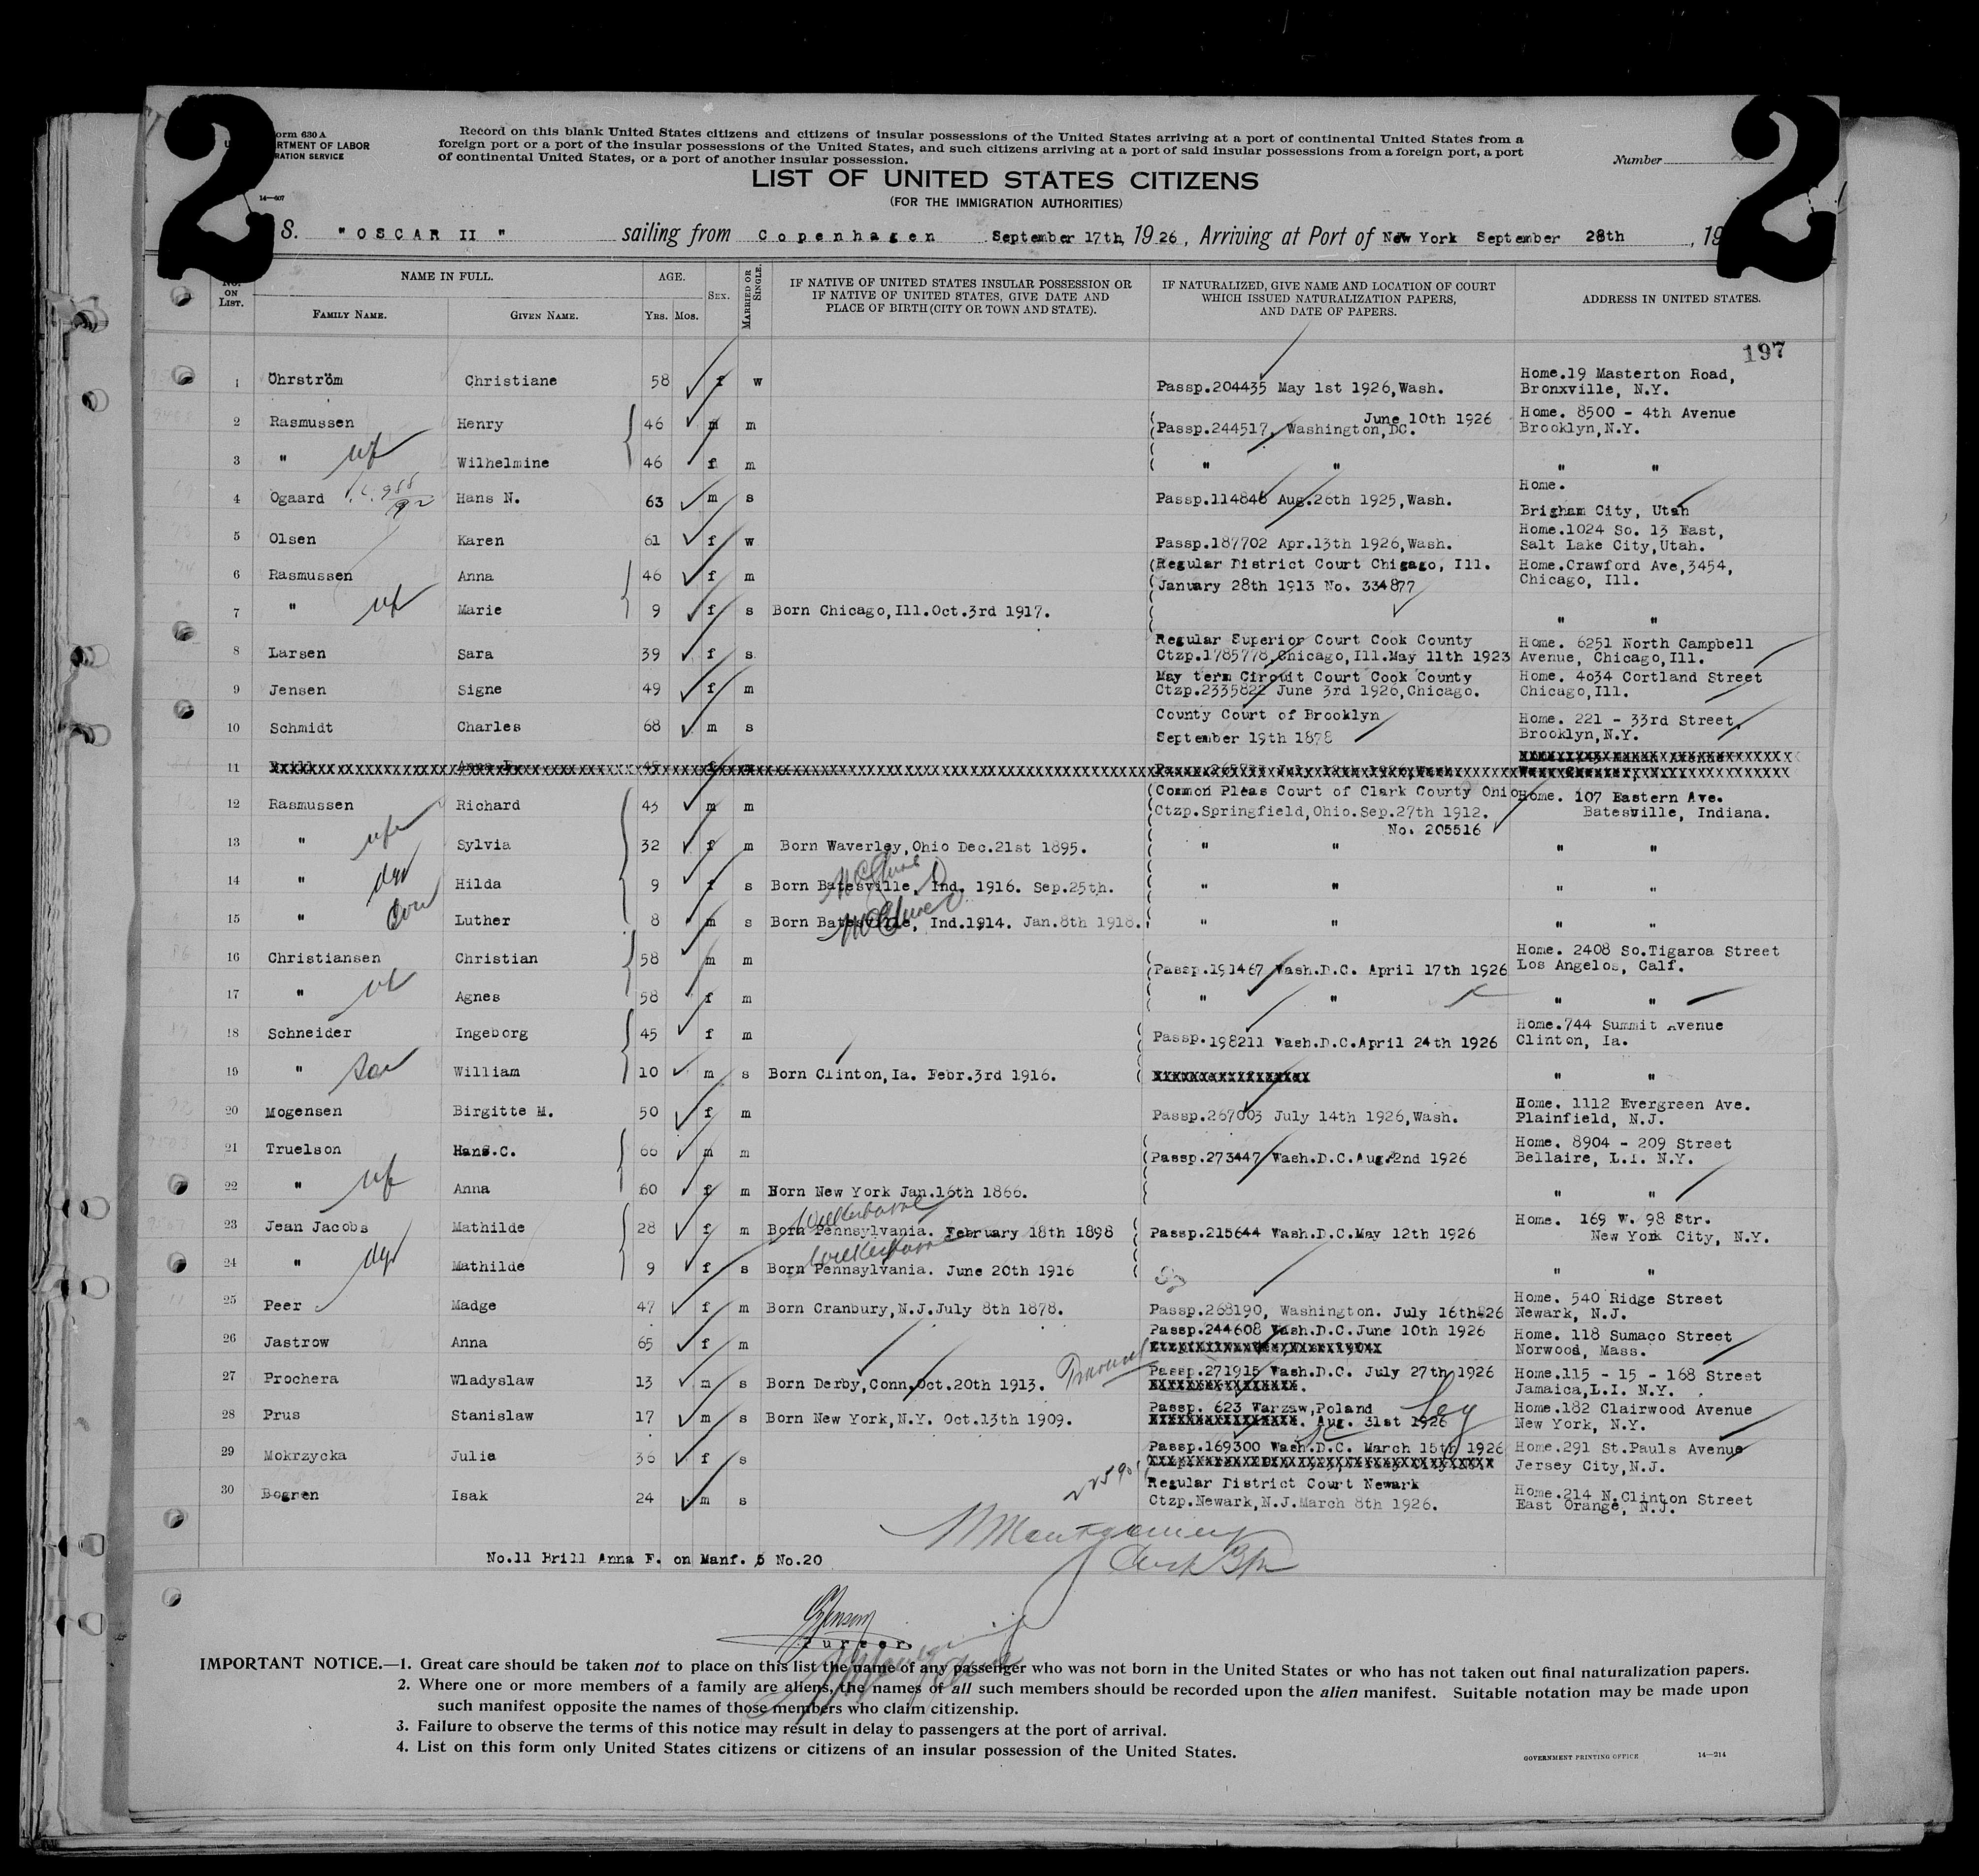 2
2
Form 630 A
DEPARTMENT OF LABOR
IMMIGRATION SERVICE
14—607
Record on this blank United States citizens and citizens of insular possessions of the United States arriving at a port of continental United States from a
foreign port or a port of the insular possessions of the United States, and such citizens arriving at a port of said insular possessions from a foreign port, a port
of continental United States, or a port of another insular possession.
Number
LIST OF UNITED STATES CITIZENS
(FOR THE IMMIGRATION AUTHORITIES)
S. "OSCAR II" sailing from Copenhagen September 17th, 1926, Arriving at Port of New York September 28th, 19
No. ON LIST. NAME IN FULL. FAMILY NAME. GIVEN NAME. AGE. YRS. MOS. SEX. MARRIED OR SINGLE. IF NATIVE OF UNITED STATES INSULAR POSSESSION OR IF NATIVE OF UNITED STATES, GIVE DATE AND PLACE OF BIRTH (CITY OR TOWN AND STATE). IF NATURALIZED, GIVE NAME AND LOCATION OF COURT WHICH ISSUED NATURALIZATION PAPERS, AND DATE OF PAPERS. ADDRESS IN UNITED STATES.
197
1 Öhrström Christiane 58 f w Passp.204435 May 1st 1926,Wash. Home.19 Masterton Road, Bronxville, N.Y.
2 Rasmussen Henry 46 m m Passp.244517, Washington,DC. June 10th 1926 Home. 8500 - 4th Avenue Brooklyn,N.Y.
3 " wf Wilhelmine 46 f m " " " "
4 Ogaard Hans N. 63 m s Passp.114846 Aug.26th 1925,Wash. Home. Brigham City, Utah
5 Olsen Karen 61 f w Passp.187702 Apr.13th 1926,Wash. Home.1024 So. 13 East, Salt Lake City,Utah.
6 Rasmussen Anna 46 f m Regular District Court Chigago, Ill. January 28th 1913 No. 334877 Home.Crawford Ave,3454, Chicago, Ill.
7 " wf Marie 9 f s Born Chicago,Ill.Oct.3rd 1917. " "
8 Larsen Sara 39 f s Regular Superior Court Cook County Ctzp.1785778,Chicago,Ill.May 11th 1923 Home. 6251 North Campbell Avenue, Chicago,Ill.
9 Jensen Signe 49 f m May term Circuit Court Cook County Ctzp.2335822 June 3rd 1926,Chicago. Home. 4034 Cortland Street Chicago,Ill.
10 Schmidt Charles 68 m s County Court of Brooklyn September 19th 1878 Home. 221 - 33rd Street, Brooklyn,N.Y.
11
12 Rasmussen Richard 43 m m Common Pleas Court of Clark County Ohio Ctzp.Springfield,Ohio.Sep.27th 1912. No. 205516 Home. 107 Eastern Ave. Batesville, Indiana.
13 " wfe Sylvia 32 f m Born Waverley,Ohio Dec.21st 1895. " " " "
14 " dgr Hilda 9 f s Born Batesville, Ind. 1916. Sep.25th. " " " "
15 " son Luther 8 m s Born Batesville, Ind.1914. Jan.8th 1918. " " " "
16 Christiansen Christian 58 m m Passp.191467 Wash.D.C. April 17th 1926 Home. 2408 So.Tigaroa Street Los Angelos, Calf.
17 " wf Agnes 58 f m " " " "
18 Schneider Ingeborg 45 f m Passp.198211 Wash.D.C.April 24th 1926 Home.744 Summit Avenue Clinton, Ia.
19 " son William 10 m s Born Clinton,Ia. Febr.3rd 1916. " "
20 Mogensen Birgitte M. 50 f m Passp.267003 July 14th 1926,Wash. Home. 1112 Evergreen Ave. Plainfield, N.J.
21 Truelson Hans.C. 66 m m Passp.273447 Wash.D.C.Aug.2nd 1926 Home. 8904 - 209 Street Bellaire, L.I. N.Y.
22 " wf Anna 60 f m Born New York Jan.16th 1866. " "
23 Jean Jacobs Mathilde 28 f m Born Pennsylvania. February 18th 1898 Passp.215644 Wash.D.C.May 12th 1926 Home. 169 W. 98 Str. New York City, N.Y.
24 " dgr Mathilde 9 f s Born Pennsylvania. June 20th 1916 " "
25 Peer Madge 47 f m Born Cranbury,N.J.July 8th 1878. Passp.268190, Washington. July 16th-26 Home. 540 Ridge Street Newark, N.J.
26 Jastrow Anna 65 f m Passp.244608 Wash.D.C.June 10th 1926 Home. 118 Sumaco Street Norwood, Mass.
27 Prochera Wladyslaw 13 m s Born Derby,Conn.Oct.20th 1913. Passp.271915 Wash.D.C. July 27th 1926 Home.115 - 15 - 168 Street Jamaica,L.I. N.Y.
28 Prus Stanislaw 17 m s Born New York,N.Y. Oct.13th 1909. Passp. 623 Warzaw,Poland Aug. 31st 1926 Home.182 Clairwood Avenue New York, N.Y.
29 Mokrzycka Julia 36 f s Passp.169300 Wash.D.C. March 15th 1926 Home.291 St.Pauls Avenue Jersey City,N.J.
30 Bognen Isak 24 m s Regular District Court Newark Ctzp.Newark,N.J.March 8th 1926. Home.214 N.Clinton Street East Orange, N.J.
No.11 Brill Anna F. on Manf. 5 No.20
Purser.
IMPORTANT NOTICE.—1. Great care should be taken not to place on this list the name of any passenger who was not born in the United States or who has not taken out final naturalization papers.
2. Where one or more members of a family are aliens, the names of all such members should be recorded upon the alien manifest. Suitable notation may be made upon
such manifest opposite the names of those members who claim citizenship.
3. Failure to observe the terms of this notice may result in delay to passengers at the port of arrival.
4. List on this form only United States citizens or citizens of an insular possession of the United States.
GOVERNMENT PRINTING OFFICE 14—214